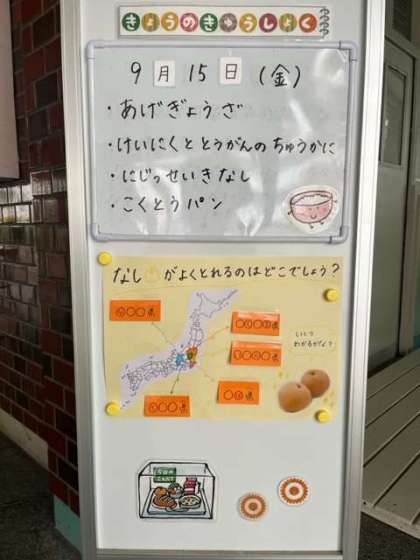 きょうのきゅうしょく
9月15日(金)
・あげぎょうざ
・けいにくととうがんのちゅうかに
・にじっせいきなし
・こくとうパン
なし がよくとれるのはどこでしょう?
いくつ
わかるかな?